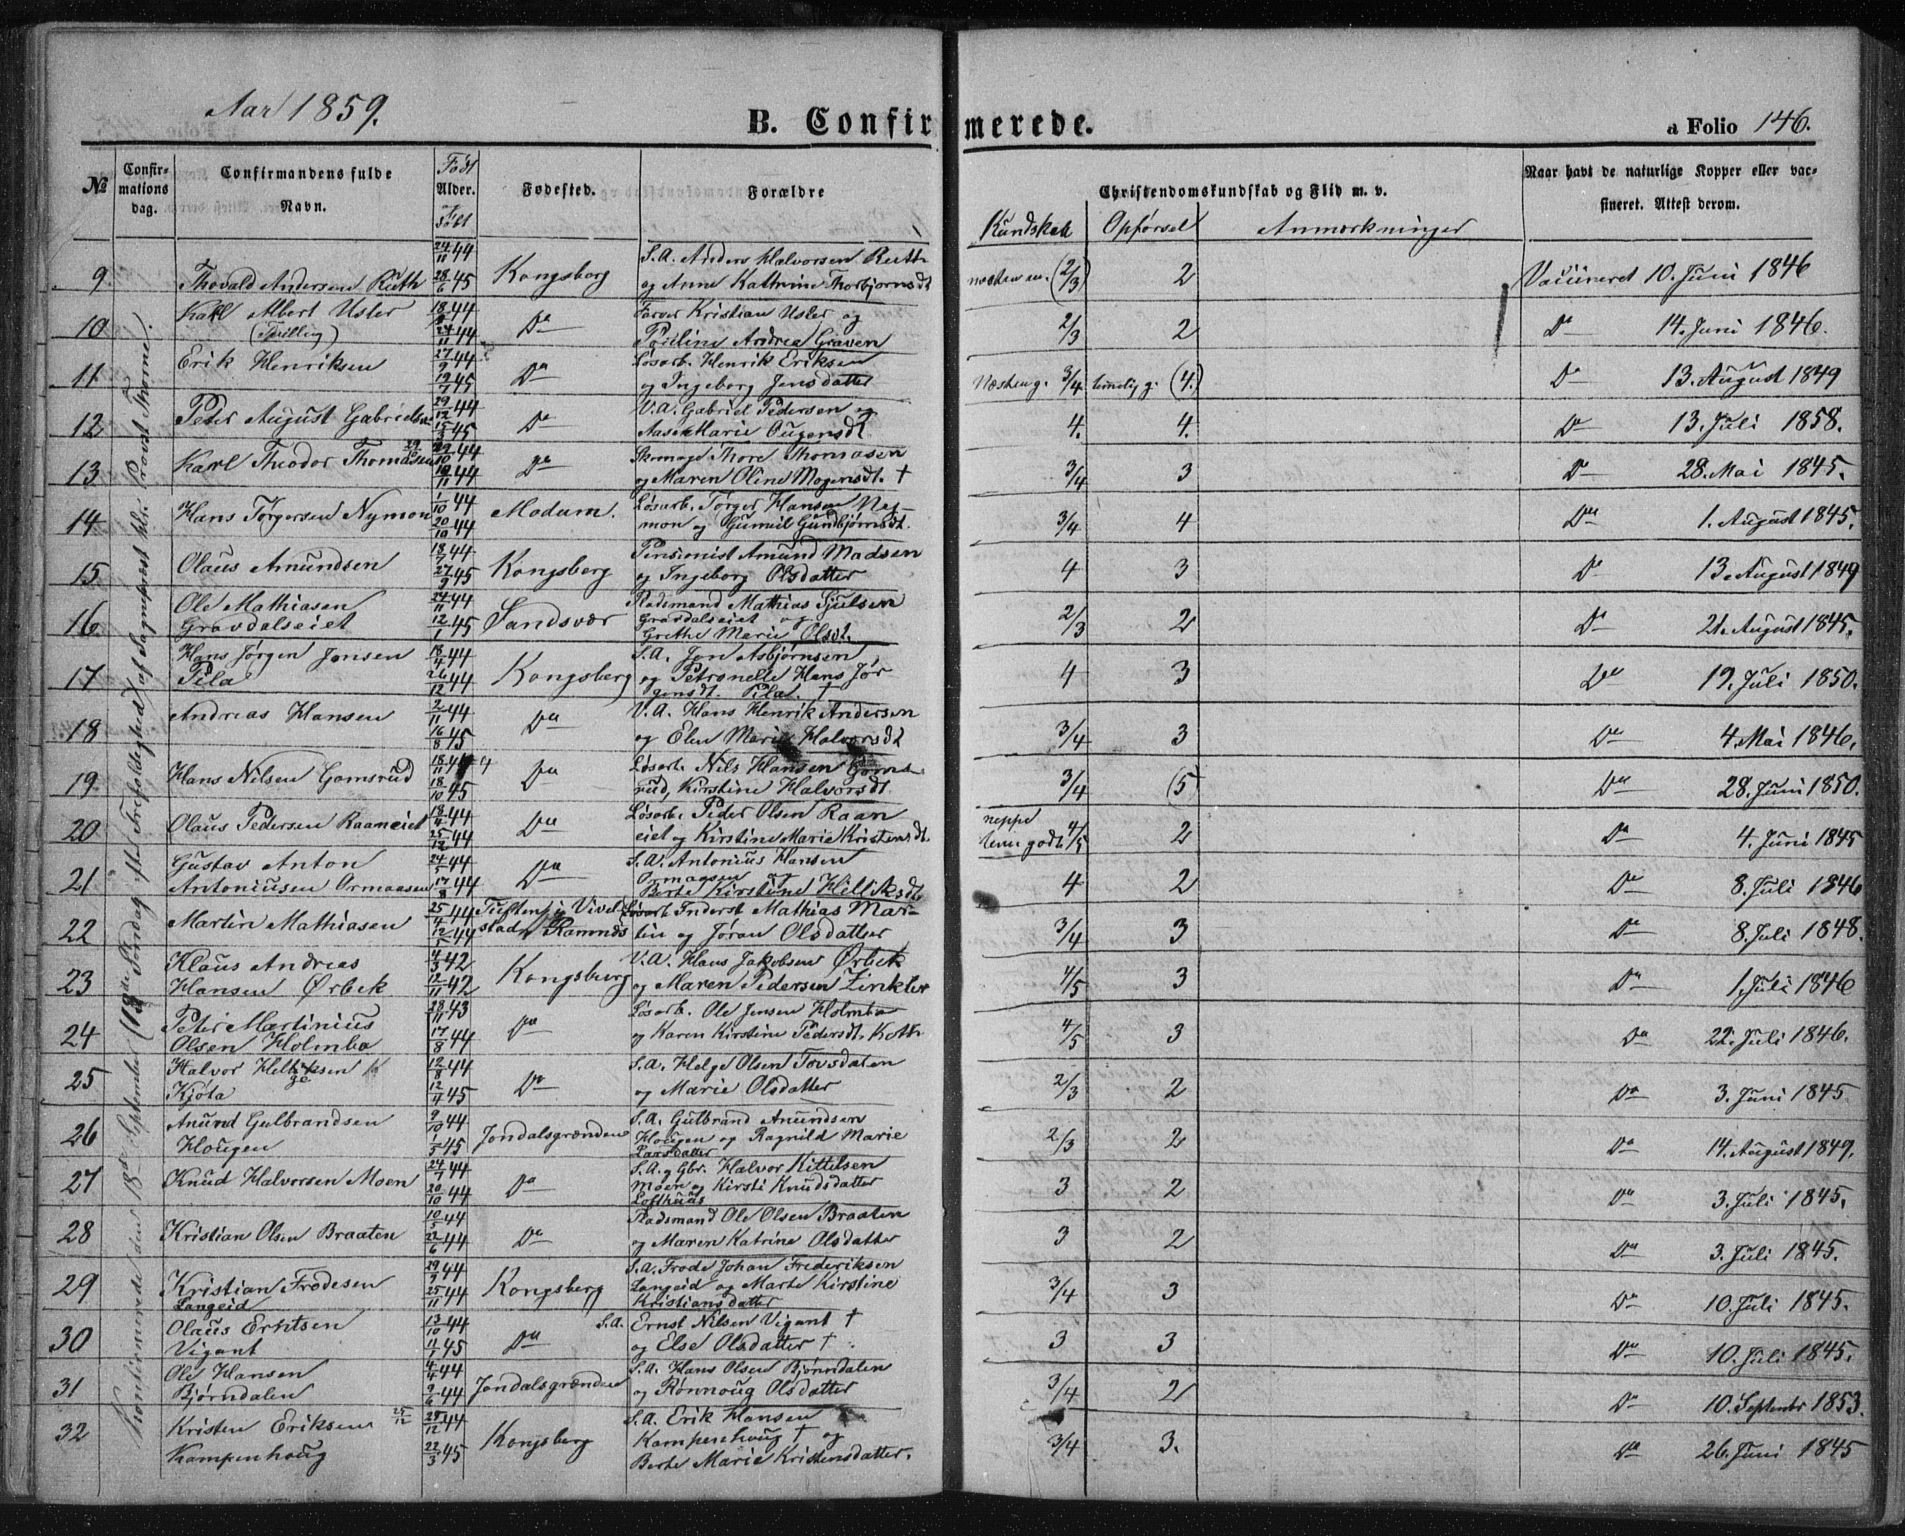 Aar 1859.
B. Confirmerede.
a Folio 146.
№
Confir-
mations
dag.
Confirmandens fulde
Navn.
Født
Alder.
Døbt
Fødested.
Forældre
Christendomskundskab og Flid m. v.
Kundskab Opførsel Anmærkninger
Naar havt de naturlige Kopper eller vac-
sineret. Attest derom.
Konfirmerede den 18de September (13de Søndag efter Trefoldighed) af Sognepræst hr. Provst Thorne.
9 Thovald Andersen Ruth 24/11 44 28/6 45 Kongsberg S.A. Anders Halvorsen Ruth
og Anne Kathrine Thorbjørnsdt (2/3) 2 Vaccineret 10. Juni 1846
10 Karl Albert Usler
(Tvilling) 18/9 44 24/11 44 Do Farver Kristian Usler og
Pauline Andrea Graven 2/3 2 Do 14. Juni 1846.
11 Erik Henriksen 27/9 44 19/7 45 Do Løsarb. Henrik Eriksen
og Ingeborg Jensdatter Næsten g. 3/4 temelig g. (4.) Do 13. August 1849
12 Peter August Gabrielsen 29/12 44 15/3 45 Do V.A. Gabriel Pedersen og
Aase Marie Ougensdt 4. 4. Do 13. Juli 1858.
13 Karl Theodor Thomasen 29/10 44 10/11 44 Do Skomager Thore Thomasen
og Maren Oline Mogensdt. † 3/4 3 Do 28. Mai 1845.
14 Hans Tørgersen Nymon 1/10 44 20/10 44 Modum. Løsarb. Tørger Hansen Ny-
mon og Gunvil Gundbjørnsdt. 3/4 4 Do 1. August 1845.
15 Olaus Amundsen 18/7 44 27/9 45 Kongsberg Pensionist Amund Madsen
og Ingeborg Olsdatter 4 3 Do 13. August 1849
16 Ole Mathiasen
Gravdalseiet 24/11 44 12/1 45 Sandsvær Pladsmand Mathias Gjulsen
Gravdalseiet og
Grethe Marie Olsdt. 2/3 2 Do 21. August 1845.
17 Hans Jørgen Jonsen
Pila 18/4 44 26/12 44 Kongsberg S.A. Jon Asbjørnsen
og Petronelle Hans Jør
gensdt. Pila. † 4 3 Do 19. Juli 1850.
18 Andreas Hansen 2/11 44 16/8 45 Do V.A. Hans Henrik Andersen
og Elen Marie Halvorsdt 3/4 3 Do 4. Mai 1846.
19 Hans Nilsen Gomsrud 18/11 44 18/10 45 Do Løsarb. Nils Hansen Goms
rud, Kirstine Halvorsdt. 3/4 (5) Do 28. Juni 1850.
20 Olaus Pedersen Raaneiet 18/4 44 25/12 44 Do Løsarb. Peder Olsen Raan
eiet og Kirstine Marie Kristensdt. neppe
godt 4/5 2 Do 4. Juni 1845
21 Gustav Anton
Antoniusen Ormaasen 24/5 44 17/8 44 Do S.A. Antonius Hansen
Ormaasen og
Berte Kirstine Helliksdt. 4 2 Do 8. Juli 1846
22 Martin Mathiasen 25/4 44 12/5 44 Vivel
stad Løsarb. Inderst Mathias Mar-
tin og Jøran Olsdatter 3/4 3 Do 8. Juli 1848.
23 Klaus Andreas
Hansen Ørbek 4/3 42 12/11 42 Kongsberg V.A. Hans Jakobsen Ørbek
og Maren Pedersen Zinkler 4/5 3 Do 1. Juli 1846
24 Peter Martinius
Olsen Holmbo 28/11 43 17/8 44 Do Løsarb. Ole Jensen Holmbo
og Karen Kirstine Pedersdt. Koth 4/5 3 Do 22. Juli 1846.
25 Halvor Helgesen
Kjøta 12/8 44 12/4 45 Do S.A. Helge Olsen Tovsdalen
og Marie Olsdatter 2/3 2 Do 3. Juni 1845
26 Anund Gulbrandsen
Hougen 9/10 44 1/5 45 Jondalsgrænden S.A. Gulbrand Anundsen
Hougen og Ragnild Marie
Larsdatter 2/3 2 Do 14. August 1849.
27 Knud Halvorsen Moen 24/7 44 20/10 44 Do S.A. og Gbr. Halvor Kittelsen
Moen og Kirsti Knudsdatter
Lofthuus 3 2 Do 3. Juli 1845.
28 Kristian Olsen Braaten 10/5 44 22/6 44 Do Pladsmand Ole Olsen Braaten
og Maren Katrine Olsdatter 3 2 Do 3. Juli 1845.
29 Kristian Frodesen
Langeid 29/9 44 25/11 44 Kongsberg S.A. Frode Johan Frederiksen
Langeid og Marte Kirstine
Kristiansdatter 3/4 3 Do 10. Juli 1845.
30 Olaus Erntsen
Vigant 13/10 44 11/1 45 Do S.A. Ernst Nilsen Vigant †
og Else Olsdatter † 3 3 Do 10. Juli 1845.
31 Ole Hansen
Bjørndalen 4/4 44 9/6 44 Jondalsgrænden S.A. Hans Olsen Bjørndalen
og Rønnoug Olsdatter 3/4 2 Do 10. Septembr 1853.
32 Kristen Eriksen 25/12
Kampenhoug 25/12 44 22/3 45 Kongsberg S.A. Erik Hansen
Kampenhoug † og
Berte Marie Kristensdatter. 3/4 3. Do 26. Juni 1845